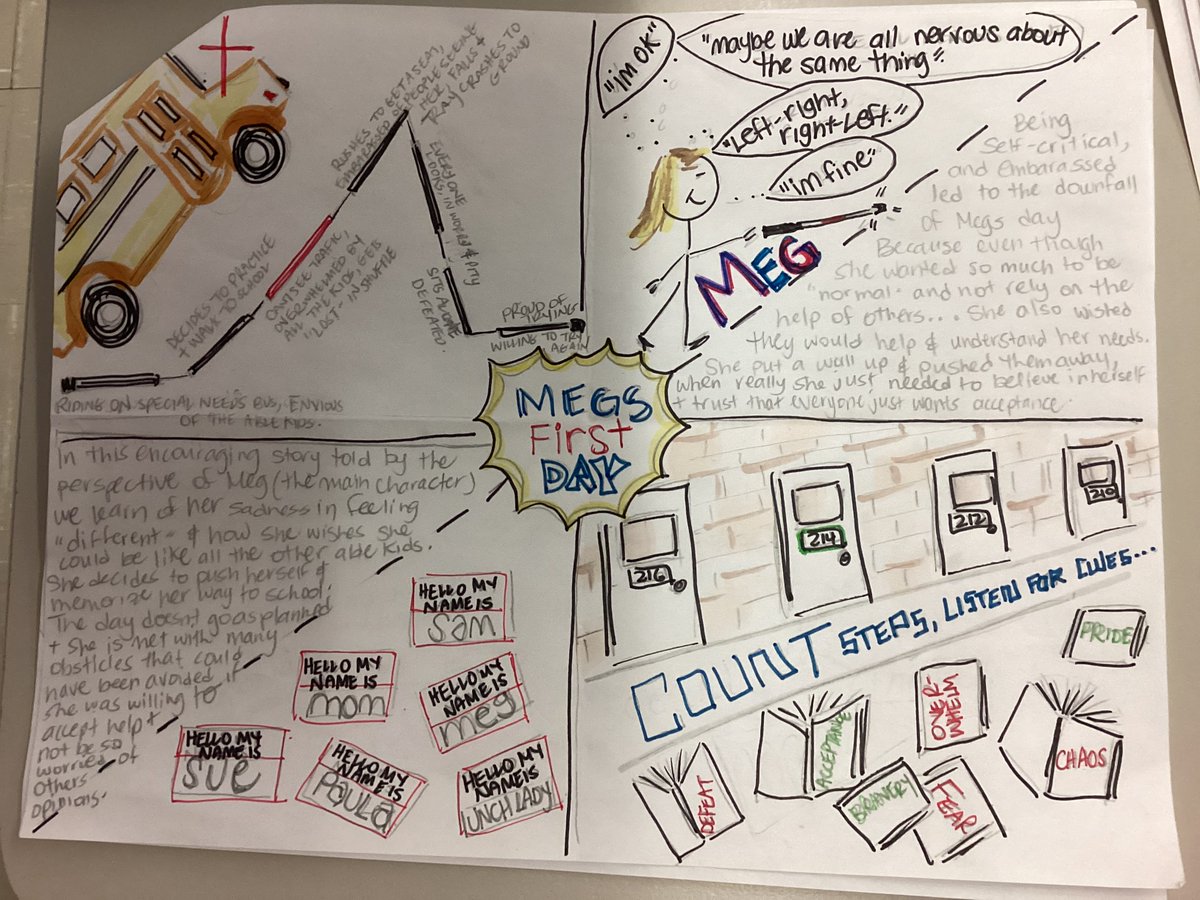 RIDING ON SPECIAL NEEDS BUS, ENVIOUS
OF THE ABLE KIDS.
DECIDES TO PRACTICE
+ WALK TO SCHOOL
CANT SEE TRAFFIC,
OVERWHELMED BY
ALL THE KIDS, GETS
"LOST" IN SHUFFLE
RUSHES TO GET A SEAT,
EMBARASSED OF PEOPLE SEEING
HER FALLS &
TRAY CRASHES TO
GROUND
EVERYONE
LOOKS IN WORRY & PITY
SITS ALONE
DEFEATED.
PROUD OF
TRYING
WILLING TO TRY
AGAIN
"im ok"
"maybe we are all nervous about
the same thing".
"Left-right,
right-Left."
"im fine"
MEG
Being
Self-critical,
and Embarassed
led to the downfall
of Megs day
Because even though
she wanted so much to be
"normal" and not rely on the
help of others... She also wisted
they would help & understand her needs.
She put a wall up & pushed them away,
when really she just needed to believe in herself
+ trust that everyone just wants acceptance.
MEGS
First
DAY
In this encouraging story told by the
perspective of Meg (the main character)
we learn of her sadness in feeling
"different" & how she wishes she
could be like all the other able kids.
She decides to push herself &
memorize her way to school.
The day doesnt go as planned
+ she is met with many
obstacles that could
have been avoided if
she was willing to
accept help +
not be so
worried of
others
opinions.
HELLO MY
NAME IS
Sam
HELLO MY
NAME IS
mom
HELLO MY
NAME IS
meg
HELLO MY
NAME IS
SUE
HELLO MY
NAME IS
Paula
HELLO MY
NAME IS
LUNCH LADY
216
214
212
210
COUNT STEPS, LISTEN FOR CUES...
PRIDE
OVER-
WHELM
ACCEPTANCE
CHAOS
DEFEAT
BRAVERY
FEAR